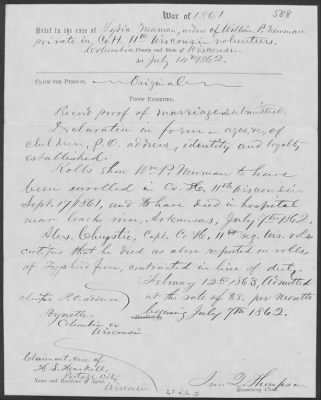 War of 1861
588
Brief in the case of Lydia Newman, widow of William P. Newman
private in Capt. 11th Wisconsin volunteers.
Columbia County and State of Wisconsin
July 14th 1862.
CLAIM FOR PENSION. Original
PROOF EXHIBITED.
Record proof of marriage submitted.
Declaration in form - ages, &c, of
children, P.O. address, identity and loyalty
established.
Rolls show Wm P. Newman to have
been enrolled in Co. H. 11th Wisconsin
Sept. 17 1861, and to have died in hospital
near cache river, Arkansas, July 7th 1862.
Alex. Chrystie, Capt. Co H, 11th reg. Wis. vols
certifies that he died as above reported on rolls,
of Typhoid fever, contracted in line of duty.
February 12th 1863, Admitted
at the rate of $8. per month
commencing July 7th 1862.
P.O. address
Columbia co
Wisconsin
Claimant, care of
H. S. Haskell
Portage City
Name and Residence of Agent.
Wisconsin
Thompson
Examining Clerk.